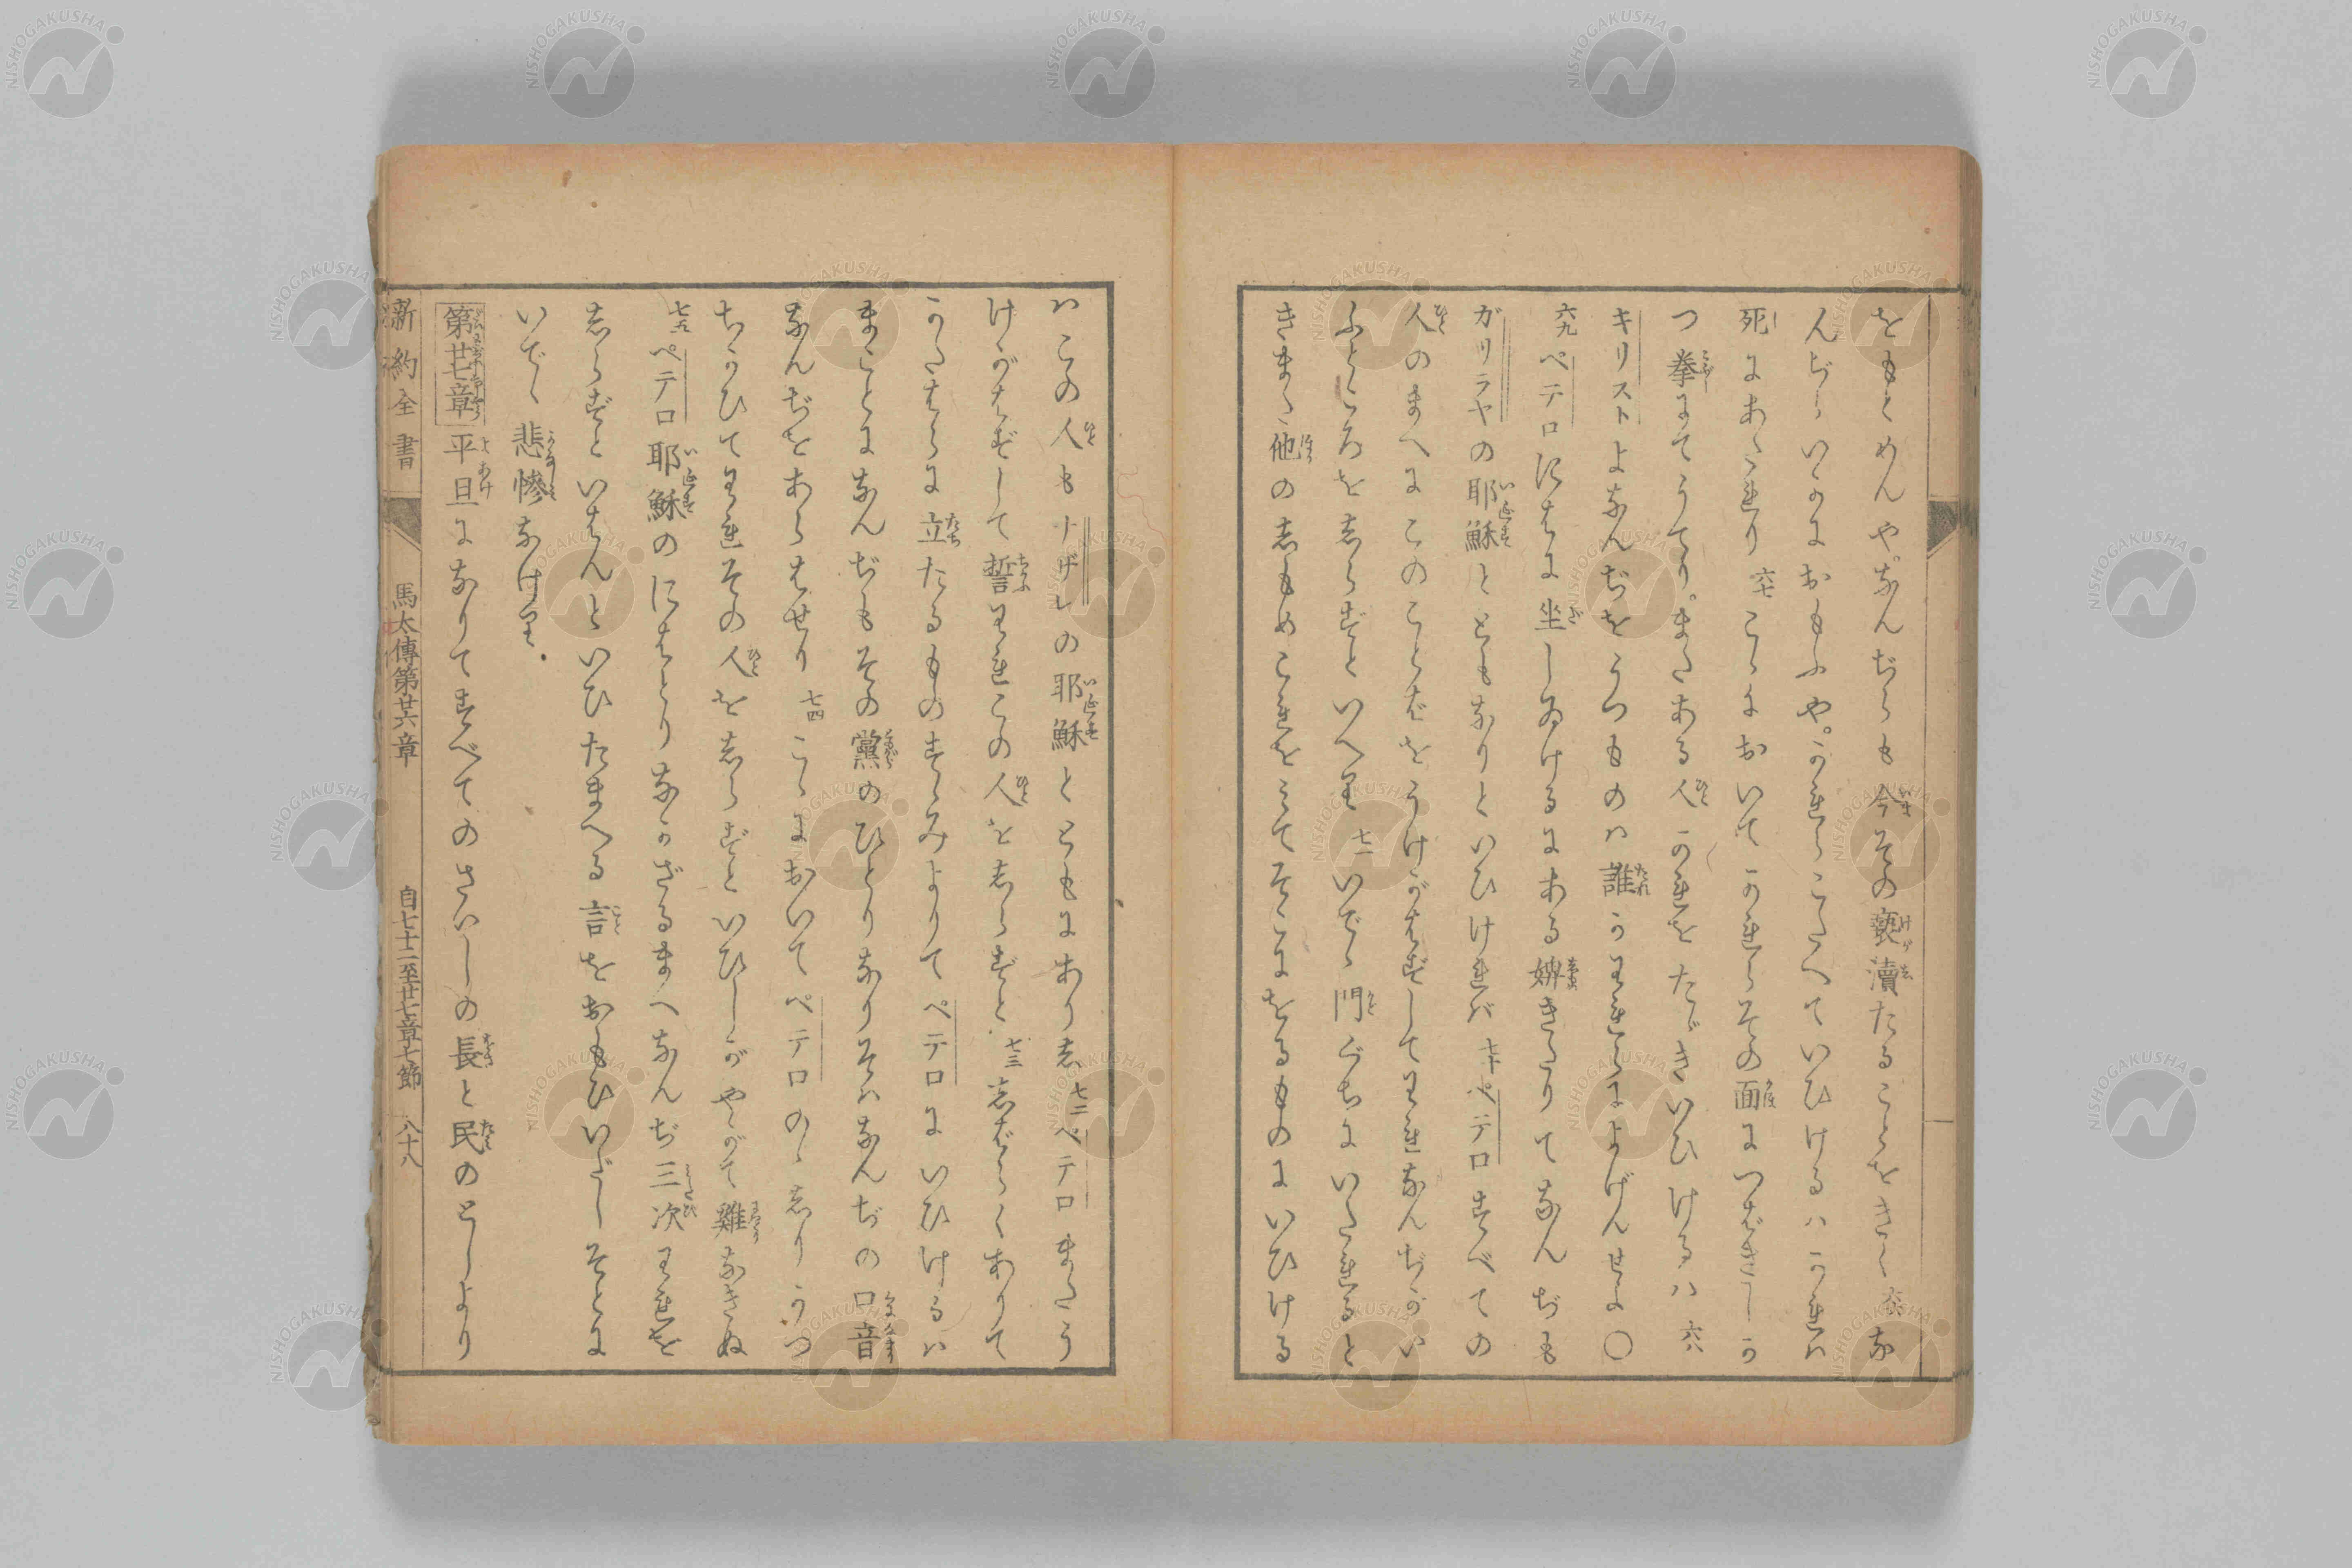 をもとめんや。なんぢらも今その褻瀆たることをきく 六六 な
んぢらいかにおもふや。かれらこたへていひけるハかれハ
死にあたれり 六七 こゝにおいてかれらその面につばきしか
つ拳にてうてり。またある人かれをたゝきいひけるハ 六八
キリストよなんぢをうつものハ誰かわれらによげんせよ〇
六九 ペテロにはに坐しゐけるにある婢きたりてなんぢも
ガリラヤの耶穌とともなりといひけれバ 七十 ペテロすべての
人のまへにこのことばをうけがはずしてわれなんぢがい
ふところをしらずといへり 七一 いでゝ門ぐちにいたれると
きまた他のしもめこれをみてそこにをるものにいひける
ハこの人もナザレの耶穌とともにありし 七二 ペテロまたう
けがはずして誓われこの人をしらずと 七三 しばらくありて
かたはらに立たるものすゝみよりてペテロにいひけるハ
まことになんぢもその黨のひとりなりそハなんぢの口音
なんぢをあらはせり 七四 こゝにおいてペテロのゝしりかつ
ちかひてわれその人をしらずといひしがやがて雞なきぬ
七五 ペテロ耶穌のにはとりなかざるまへなんぢ三次われを
しらずといはんといひたまへる言をおもひいだしそとに
いでゝ悲慘なけり。
第廿七章 平旦になりてすべてのさいしの長と民のとしより
新約全書 馬太傳第廿六章 自七十二至廿七章七節 八十八
NISHOGAKUSHA